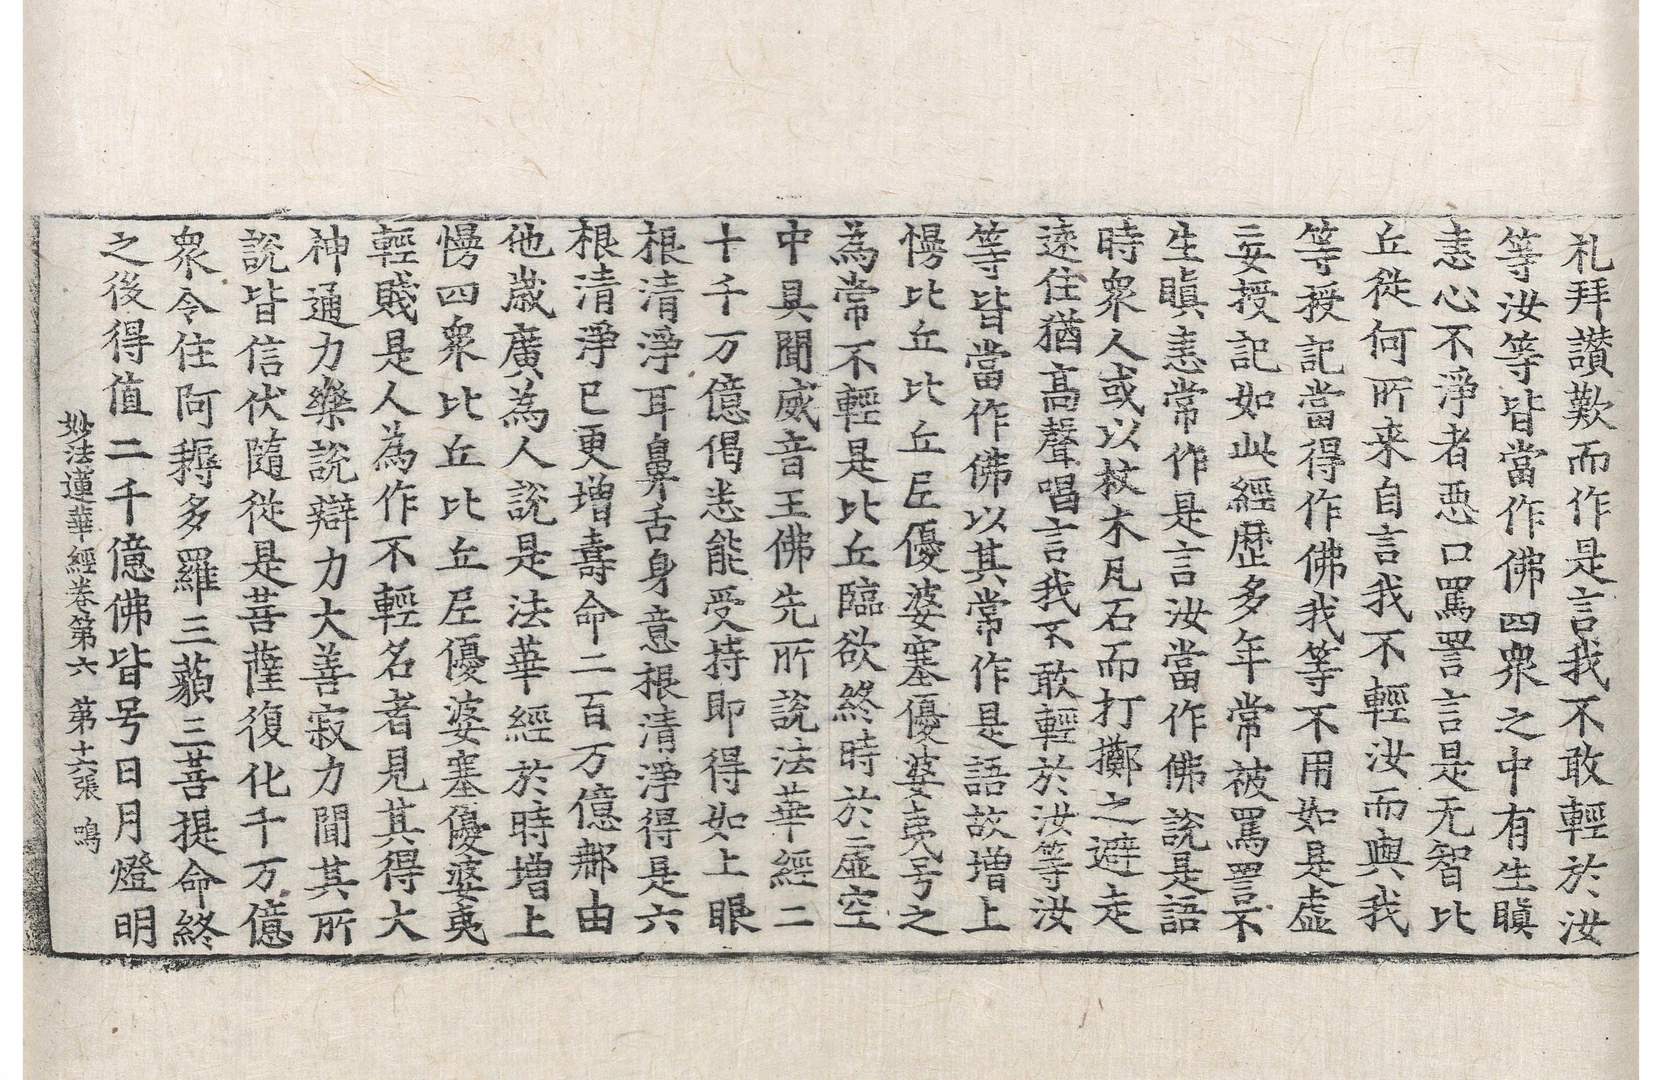 礼拜讃歎而作是言我不敢輕於汝
等汝等皆當作佛四衆之中有生瞋
恚心不淨者惡口罵詈言是无智比
丘從何所来自言我不輕汝而與我
等授記當得作佛我等不用如是虛
妄授記如此經歷多年常被罵詈不
生瞋恚常作是言汝當作佛說是語
時衆人或以杖木瓦石而打擲之避走
遠住猶髙聲唱言我不敢輕於汝等汝
等皆當作佛以其常作是語故增上
慢比丘比丘尼優婆塞優婆夷号之
為常不輕是比丘臨欲終時於虛空
中具聞威音王佛先所說法華經二
十千万億偈悉能受持即得如上眼
根清淨耳鼻舌身意根清淨得是六
根清淨已更增壽命二百万億那由
他歲廣為人說是法華經於時增上
慢四衆比丘比丘尼優婆塞優婆夷
輕賤是人為作不輕名者見其得大
神通力樂說辯力大善寂力聞其所
說皆信伏隨從是菩薩復化千万億
衆令住阿耨多羅三藐三菩提命終
之後得值二千億佛皆号日月燈明
妙法蓮華經卷第六　第十六張　鳴